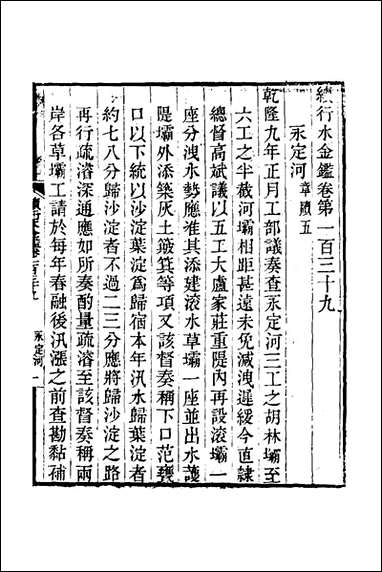 續行水金鑑卷第一百三十九
永定河章牘五
乾隆九年正月工部議奏查永定河三工之胡林壩至
六工之半截河壩相距甚遠未免減洩遲緩今直隸
總督高斌議以五工大盧家莊重隄內再設滾壩一
座分洩水勢應准其添建滾水草壩一座並出水護
隄壩外添築灰土簸箕等項又該督奏稱下口范甕
口以下統以沙淀葉淀為歸宿本年汛水歸葉淀者
約七八分歸沙淀者不過二三分應將歸沙淀之路
再行疏濬深通應如所奏酌量疏濬至該督奏稱兩
岸各草壩工請於每年春融後汛漲之前查勘黏補
永定河 一